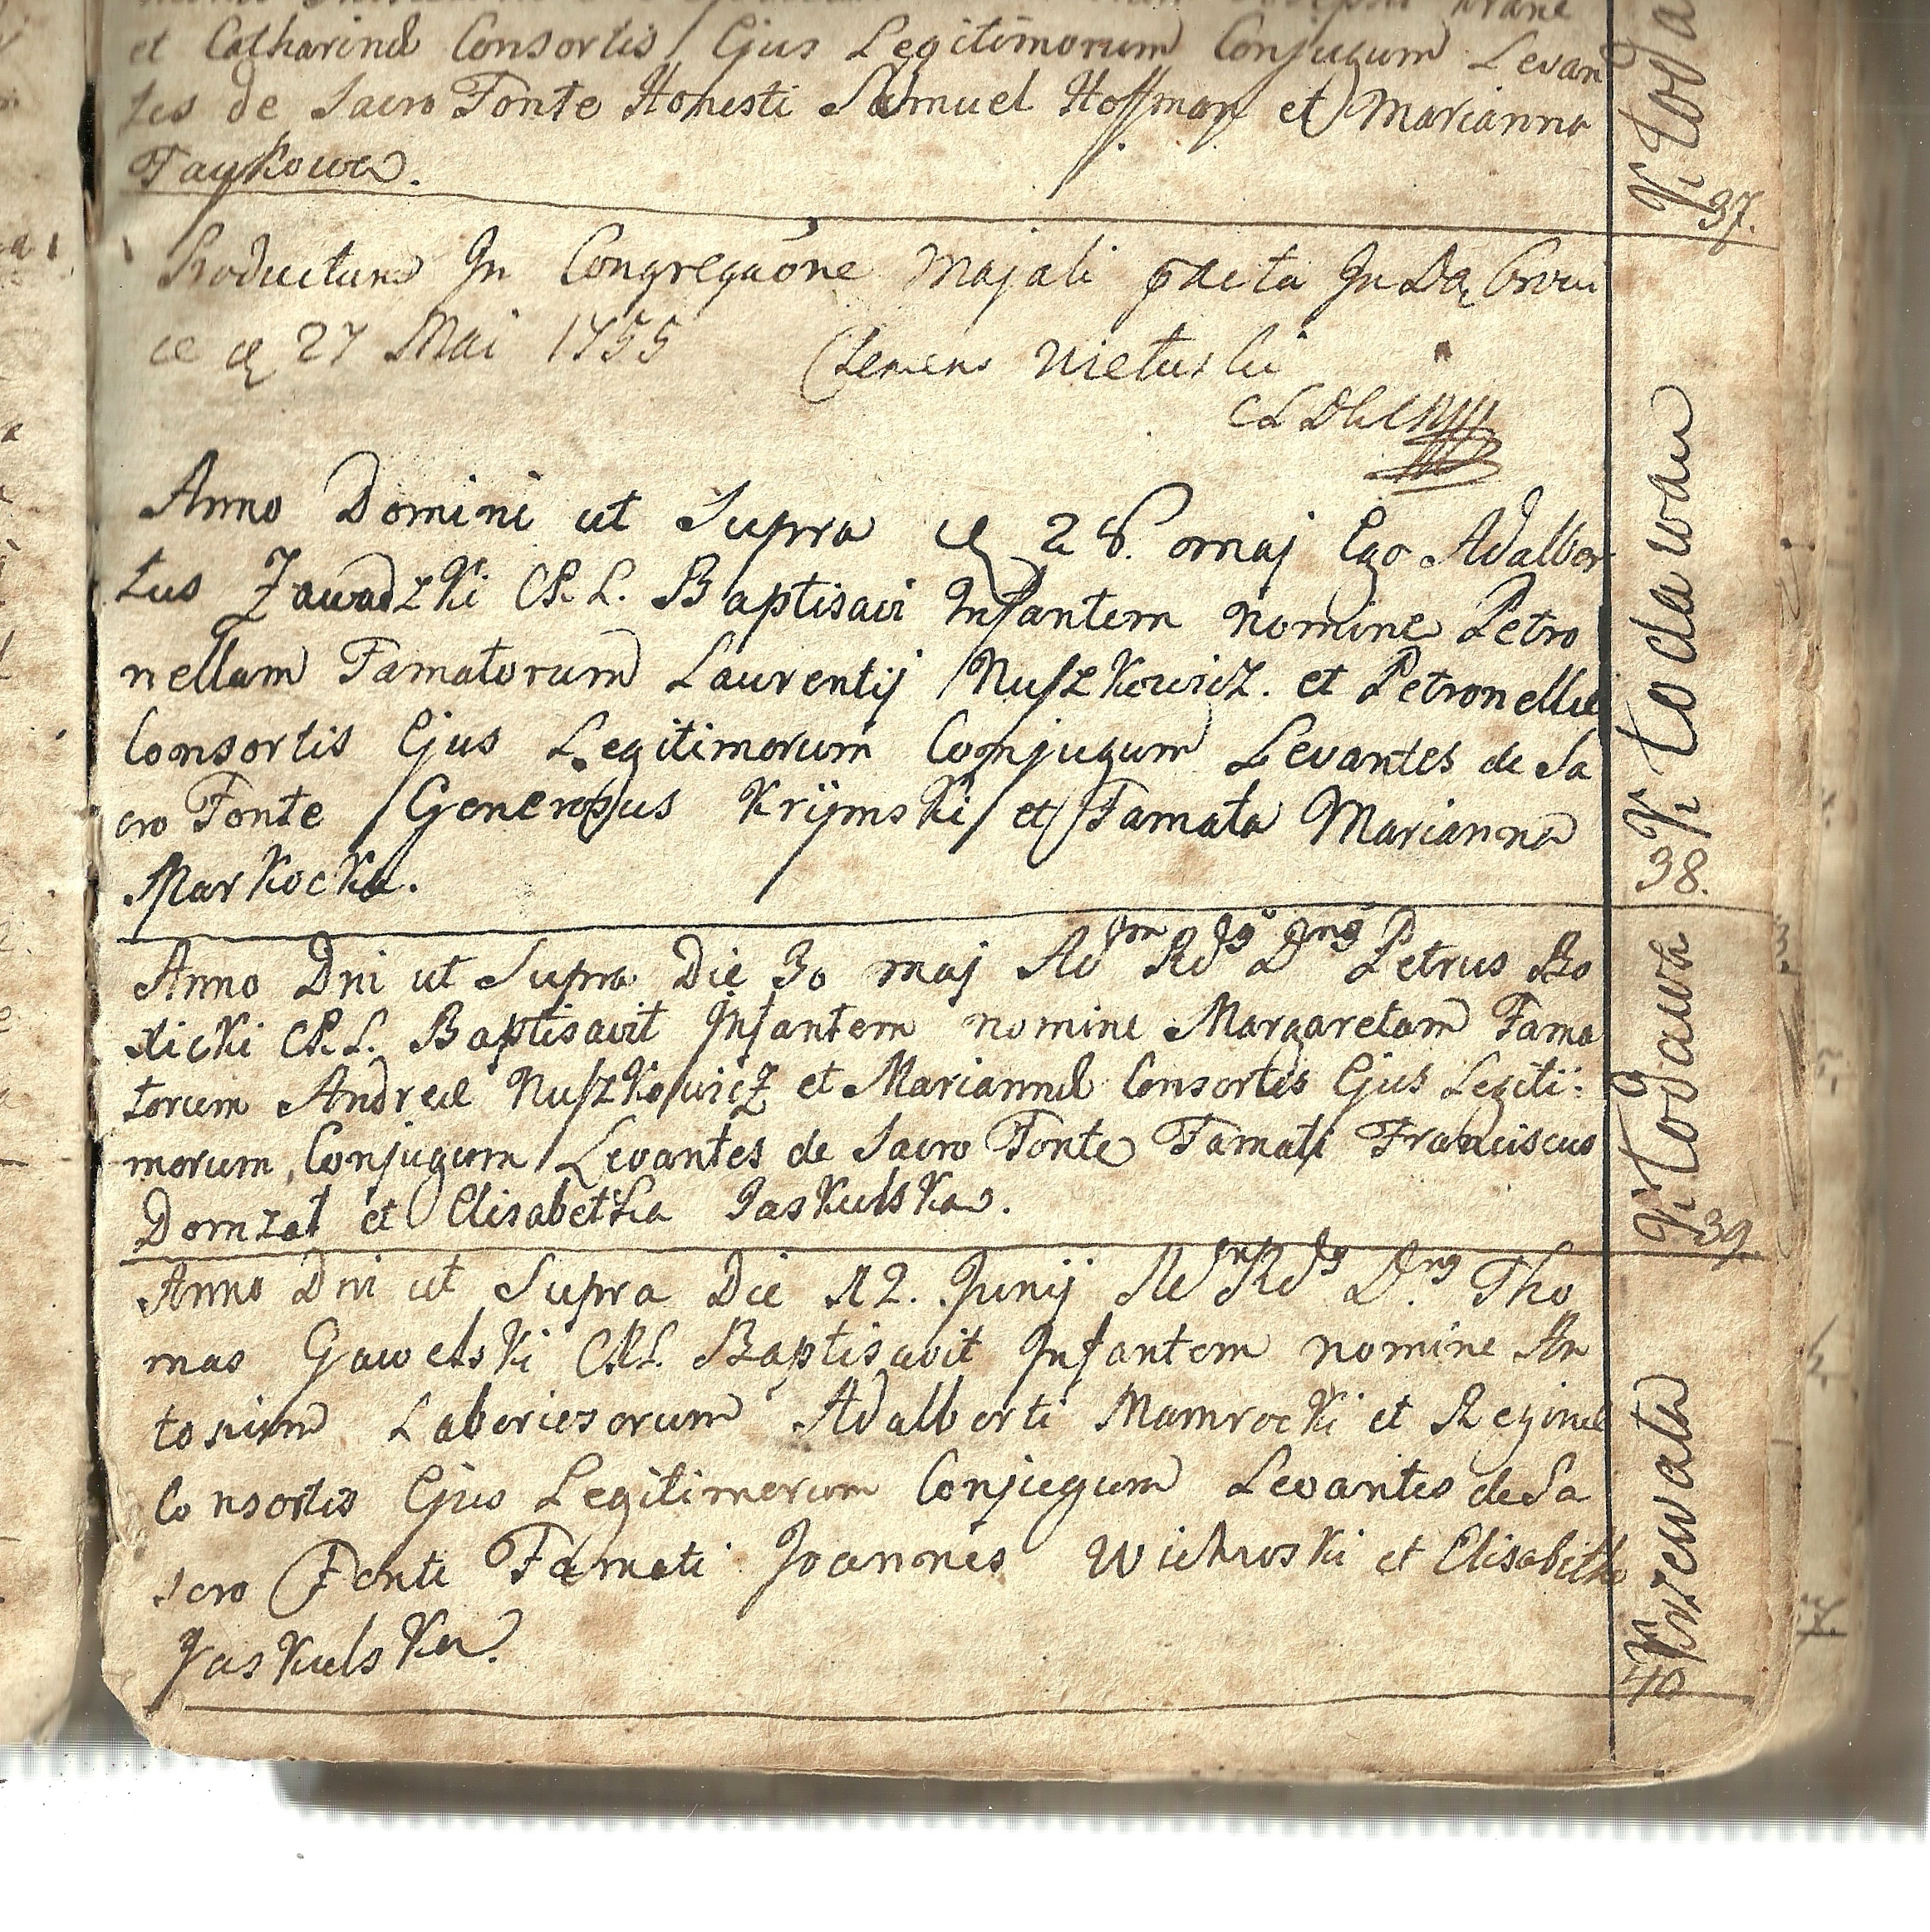 et Catharinæ Consortis Ejus Legitimorum Conjugum Levan
tes de Sacro Fonte Honesti Samuel Hoffman et Marianna
Taykowa.
37.
Productum In Congregaōne Majali facta In
27 Mai 1755 Clemens
Anno Domini ut Supra 28. maj Ego Adalber
tus Zawadzki CRL. Baptisavi Infantem nomine Petro
nellam Famatorum Laurentij Nuszkowicz. et Petronellæ
Consortis Ejus Legitimorum Conjugum Levantes de Sa
cro Fonte Generosus Krijmski et Famata Marianna
Markocka.
Kłodawa
38.
Anno Dni ut Supra Die 30 maj Adm Rds Dns Petrus
CRL. Baptisavit Infantem nomine Margaretam Fama
torum Andreæ Nuszkowicz et Mariannæ Consortis Ejus Legiti:
morum Conjugum Levantes de Sacro Fonte Famati Franciscus
Domzał et Elisabetha Jaskulska.
Kłodawa
39.
Anno Dni ut Supra Die 12. Junij Adm Rds Dns Tho
mas Gawelski CRL. Baptisavit Infantem nomine An
tonium Laboriosorum Adalberti Mamrocki et Reginæ
Consortis Ejus Legitimorum Conjugum Levantes de Sa
cro Fonte Famati Joannes Wichroski et Elisabetha
Jaskulska.
40